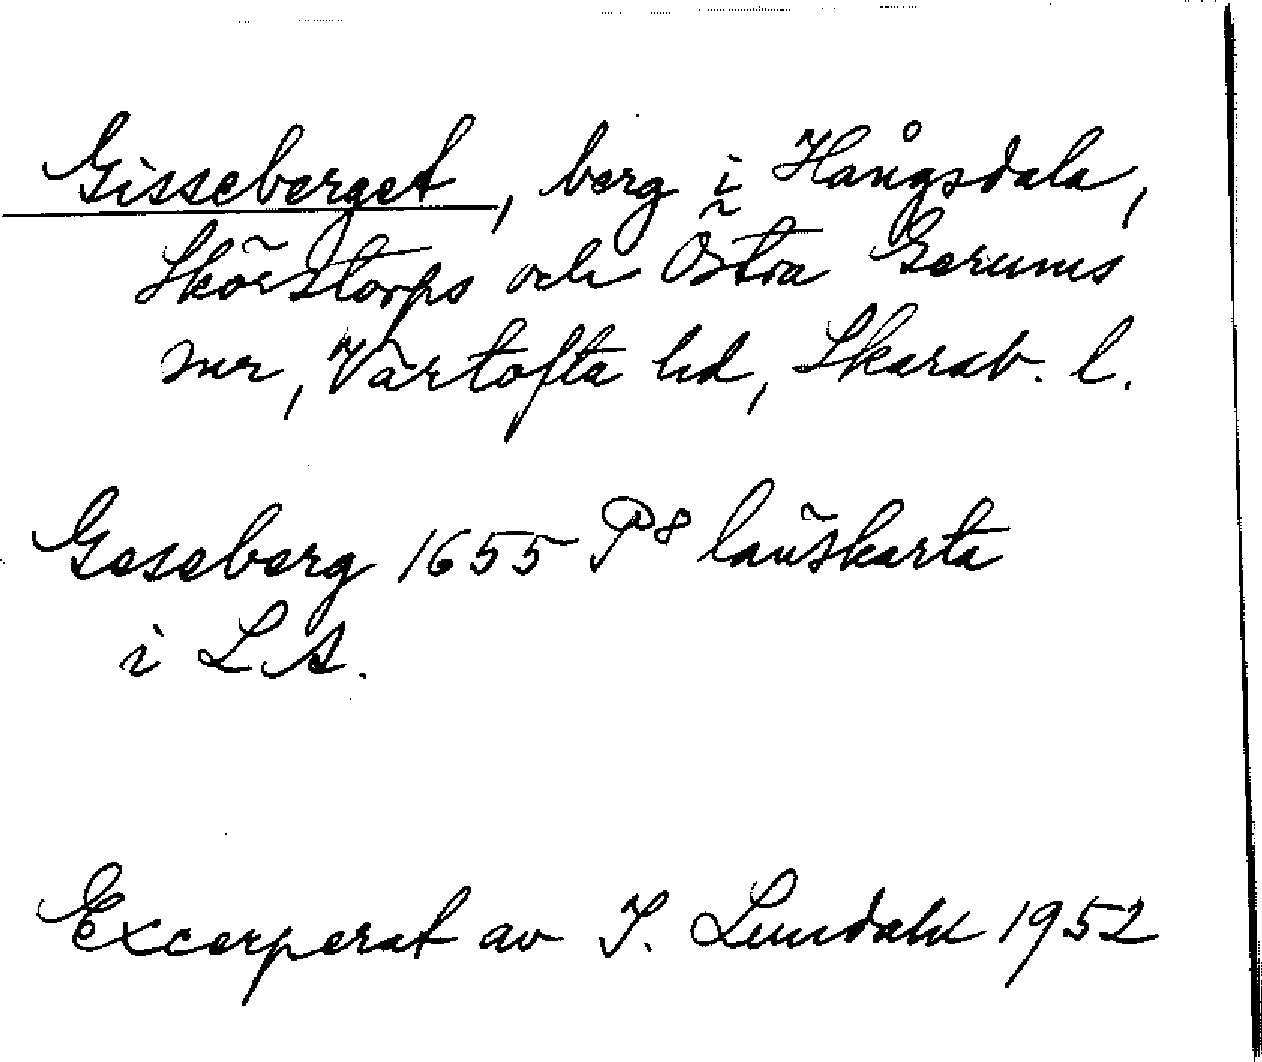 Gisseberget, berg i Hångsdala,
Skörstorps och Östra Gerums
snr, Vartofta hd, Skarab. l.
Geseberg 1655 P8 länskarta
i LA.
Excerperat av I. Lundahl 1952